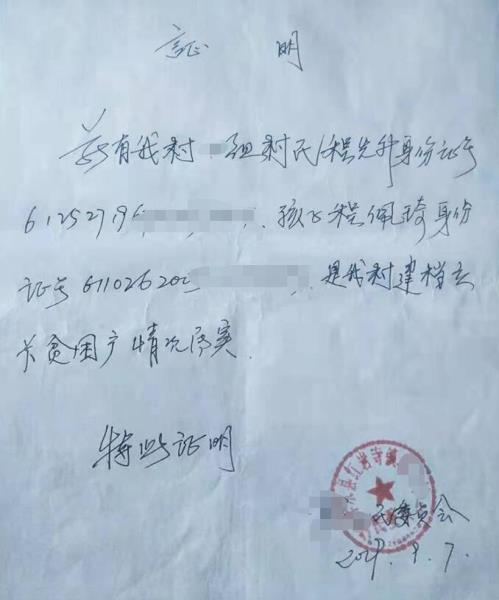 证 明
兹有我村 组村民程先科身份证号
612527196 孩子程佩琦身份
证号61102620 是我村建档立
卡贫困户情况属实.
特此证明
县红岩寺镇
民委员会
9.7.